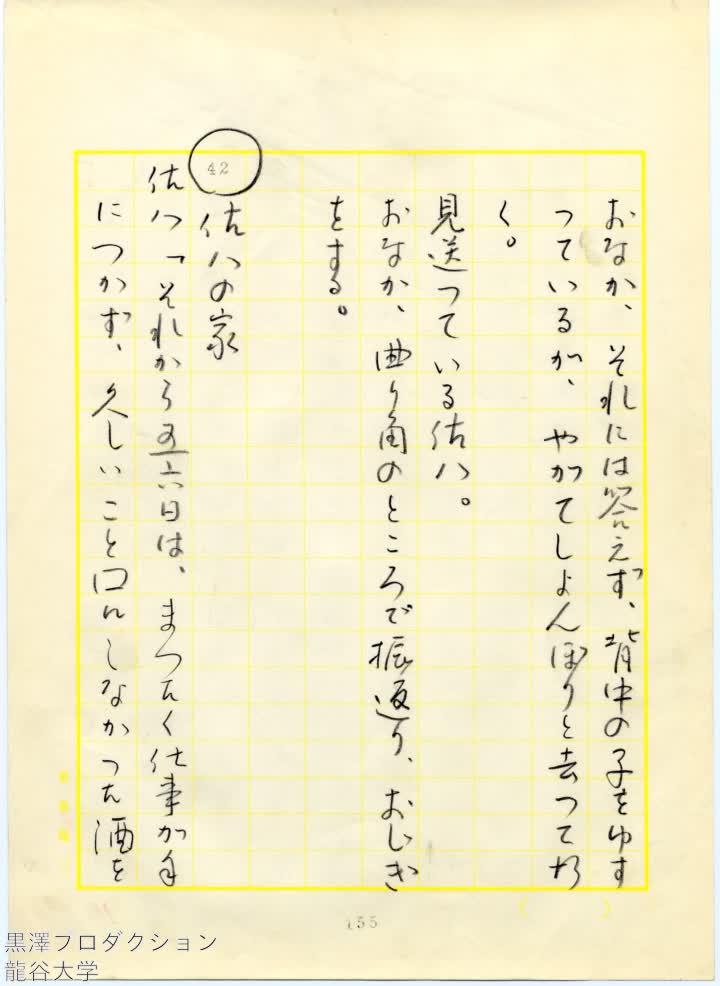 おなか、それには答えず、背中の子をゆす
つているが、やがてしょんぼりと去つて行
く。
見送つている佐八。
おなか、曲り角のところで振返り、おじぎ
をする。
42
佐八の家
佐八「それから五六日は、まつたく仕事が手
につかず、久しいこと口にしなかつた酒を
155
黒澤プロダクション
龍谷大学